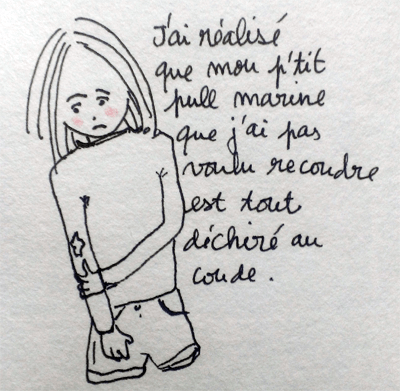 J'ai réalisé
que mon p'tit
pull marine
que j'ai pas
voulu recoudre
est tout
déchiré au
coude.